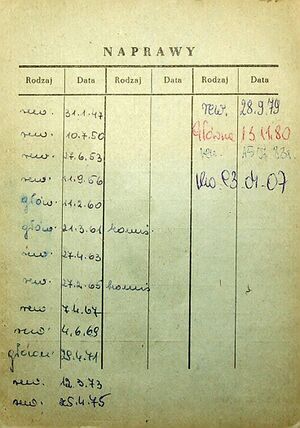 NAPRAWY
Rodzaj Data Rodzaj Data Rodzaj Data
rew. 31.1.47 rew. 28.9.79
rew. 10.7.50 Główna 13.11.80
rew. 27.6.53 rew.
rew. 11.9.56
głów. 11.2.60
głów. 21.3.61
rew. 27.4.63
rew. 27.2.65
rew. 7.4.67
rew. 4.6.69
główn. 29.4.71
rew. 12.3.73
rew. 25.4.75